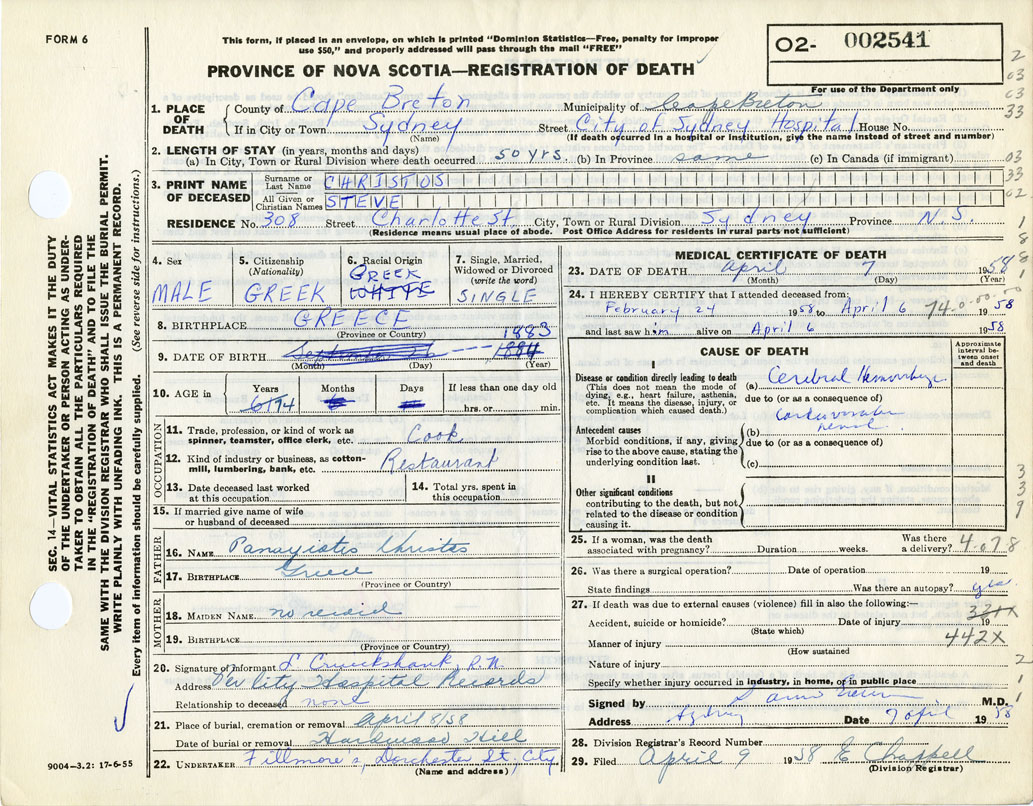 FORM 6
This form, if placed in an envelope, on which is printed "Dominion Statistics—Free, penalty for improper
use $50," and properly addressed will pass through the mail "FREE"
PROVINCE OF NOVA SCOTIA—REGISTRATION OF DEATH
02- 002541
For use of the Department only
1. PLACE OF DEATH
County of Cape Breton Municipality of Cape Breton
If in City or Town Sydney Street City of Sydney Hospital House No.
(Name) (If death occurred in a hospital or institution, give the name instead of street and number)
2. LENGTH OF STAY (in years, months and days)
(a) In City, Town or Rural Division where death occurred 50 yrs. (b) In Province same (c) In Canada (if immigrant)
3. PRINT NAME OF DECEASED
Surname or Last Name CHRISTOS
All Given or Christian Names STEVE
RESIDENCE No. 308 Street Charlotte St. City, Town or Rural Division Sydney Province N.S.
(Residence means usual place of abode. Post Office Address for residents in rural parts not sufficient)
4. Sex
MALE
5. Citizenship
(Nationality)
GREEK
6. Racial Origin
GREEK
WHITE
7. Single, Married,
Widowed or Divorced
(write the word)
SINGLE
8. BIRTHPLACE GREECE
(Province or Country)
1883
9. DATE OF BIRTH September 26 1884
(Month) (Day) (Year)
10. AGE in
Years Months Days If less than one day old
74 6 hrs. or min.
OCCUPATION
11. Trade, profession, or kind of work as
spinner, teamster, office clerk, etc. Cook
12. Kind of industry or business, as cotton-
mill, lumbering, bank, etc. Restaurant
13. Date deceased last worked
at this occupation
14. Total yrs. spent in
this occupation
15. If married give name of wife
or husband of deceased
FATHER
16. NAME Panayiotis Christos
17. BIRTHPLACE Greece
(Province or Country)
MOTHER
18. MAIDEN NAME no record
19. BIRTHPLACE
(Province or Country)
20. Signature of Informant L Cruickshank R.N.
Address Per City Hospital Records
Relationship to deceased none
21. Place of burial, cremation or removal April 8/58
Date of burial or removal Hardwood Hill
22. UNDERTAKER Fillmore's, Dorchester St. City
(Name and address)
9004—3.2: 17-6-55
MEDICAL CERTIFICATE OF DEATH
23. DATE OF DEATH April 7 1958
(Month) (Day) (Year)
24. I HEREBY CERTIFY that I attended deceased from:
February 24 1958 to April 6 1958
and last saw him alive on April 6 1958
CAUSE OF DEATH
Approximate
interval be-
tween onset
and death
I
Disease or condition directly leading to death
(This does not mean the mode of
dying, e.g., heart failure, asthenia,
etc. It means the disease, injury, or
complication which caused death.)
(a) Cerebral Hemorrhage
due to (or as a consequence of)
Antecedent causes
Morbid conditions, if any, giving
rise to the above cause, stating the
underlying condition last.
(b) renal
due to (or as a consequence of)
(c)
II
Other significant conditions
contributing to the death, but not
related to the disease or condition
causing it.
25. If a woman, was the death
associated with pregnancy? Duration weeks. Was there
a delivery?
4.078
26. Was there a surgical operation? Date of operation 19
State findings Was there an autopsy? yes
27. If death was due to external causes (violence) fill in also the following:
Accident, suicide or homicide? Date of injury 19
(State which)
331X
442X
Manner of injury
(How sustained
Nature of injury
Specify whether injury occurred in industry, in home, or in public place
Signed by M.D.
Address Sydney Date 7 April 1958
28. Division Registrar's Record Number
29. Filed April 9 1958 E Chappell
(Division Registrar)
SEC. 14—VITAL STATISTICS ACT MAKES IT THE DUTY
OF THE UNDERTAKER OR PERSON ACTING AS UNDER-
TAKER TO OBTAIN ALL THE PARTICULARS REQUIRED
IN THE "REGISTRATION OF DEATH" AND TO FILE THE
SAME WITH THE DIVISION REGISTRAR WHO SHALL ISSUE THE BURIAL PERMIT.
WRITE PLAINLY WITH UNFADING INK. THIS IS A PERMANENT RECORD.
Every item of information should be carefully supplied. (See reverse side for instructions.)
2
03
03
33
03
33
02
1
8
8
1
3
3
9
2
1
1